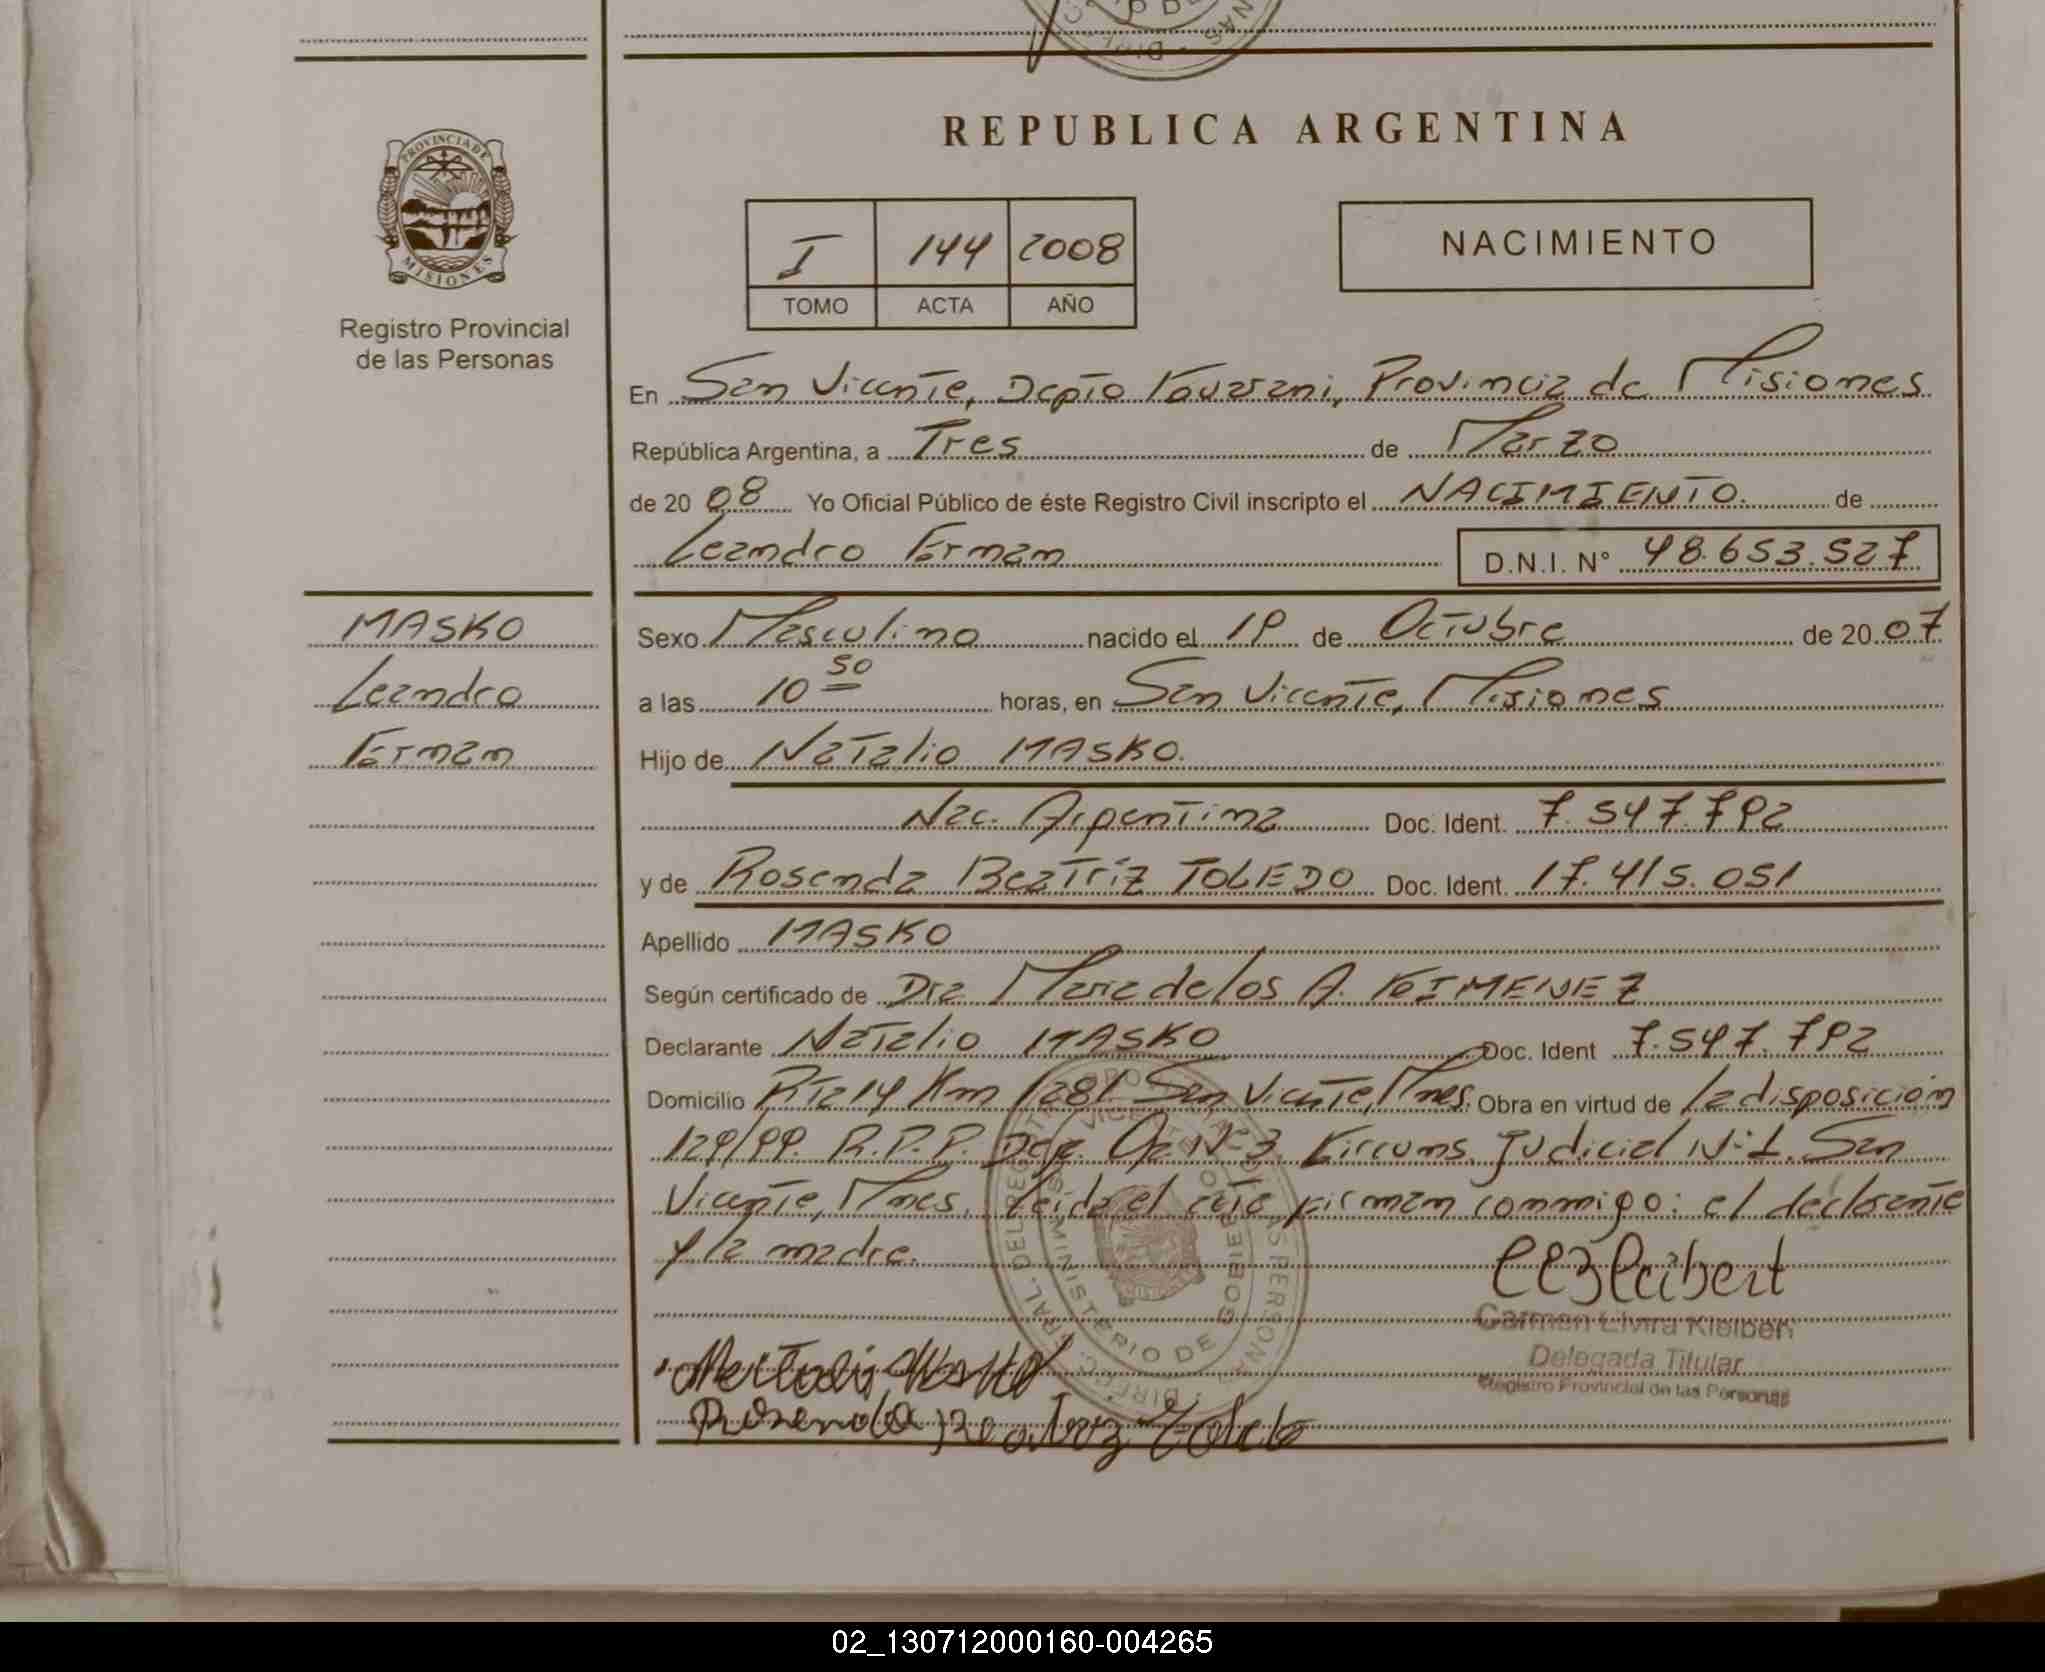 REPUBLICA ARGENTINA
PROVINCIA DE
MISIONES
Registro Provincial
de las Personas
I 144 2008
TOMO ACTA AÑO
NACIMIENTO
En San Vicente, Depto Guarani, Provincia de Misiones
República Argentina, a Tres de Marzo
de 20 08 Yo Oficial Público de éste Registro Civil inscripto el NACIMIENTO. de
Leandro German D.N.I. N° 48.653.527
MASKO
Leandro
German
Sexo Masculino nacido el 19 de Octubre de 20 07
a las 10 50 horas, en San Vicente, Misiones
Hijo de Natalio MASKO.
Nac. Argentina Doc. Ident. 7.547.792
y de Rosenda Beatriz TOLEDO Doc. Ident. 17.415.051
Apellido MASKO
Según certificado de Dra Maria de los A. GIMENEZ
Declarante Natalio MASKO Doc. Ident 7.547.792
Domicilio Rta 14 Km 1281 San Vicente, Mnes. Obra en virtud de la disposición
129/99. R.P.P. Nº 3. Circuns. Judicial Nº 1. San
Vicente, Mnes. Leida el acta firman conmigo: el declarante
y la madre.
MINISTERIO DE GOBIERNO
Carmen Elvira Kleibert
Delegada Titular
Registro Provincial de las Personas
Rosenda Beatriz Toledo
02_130712000160-004265